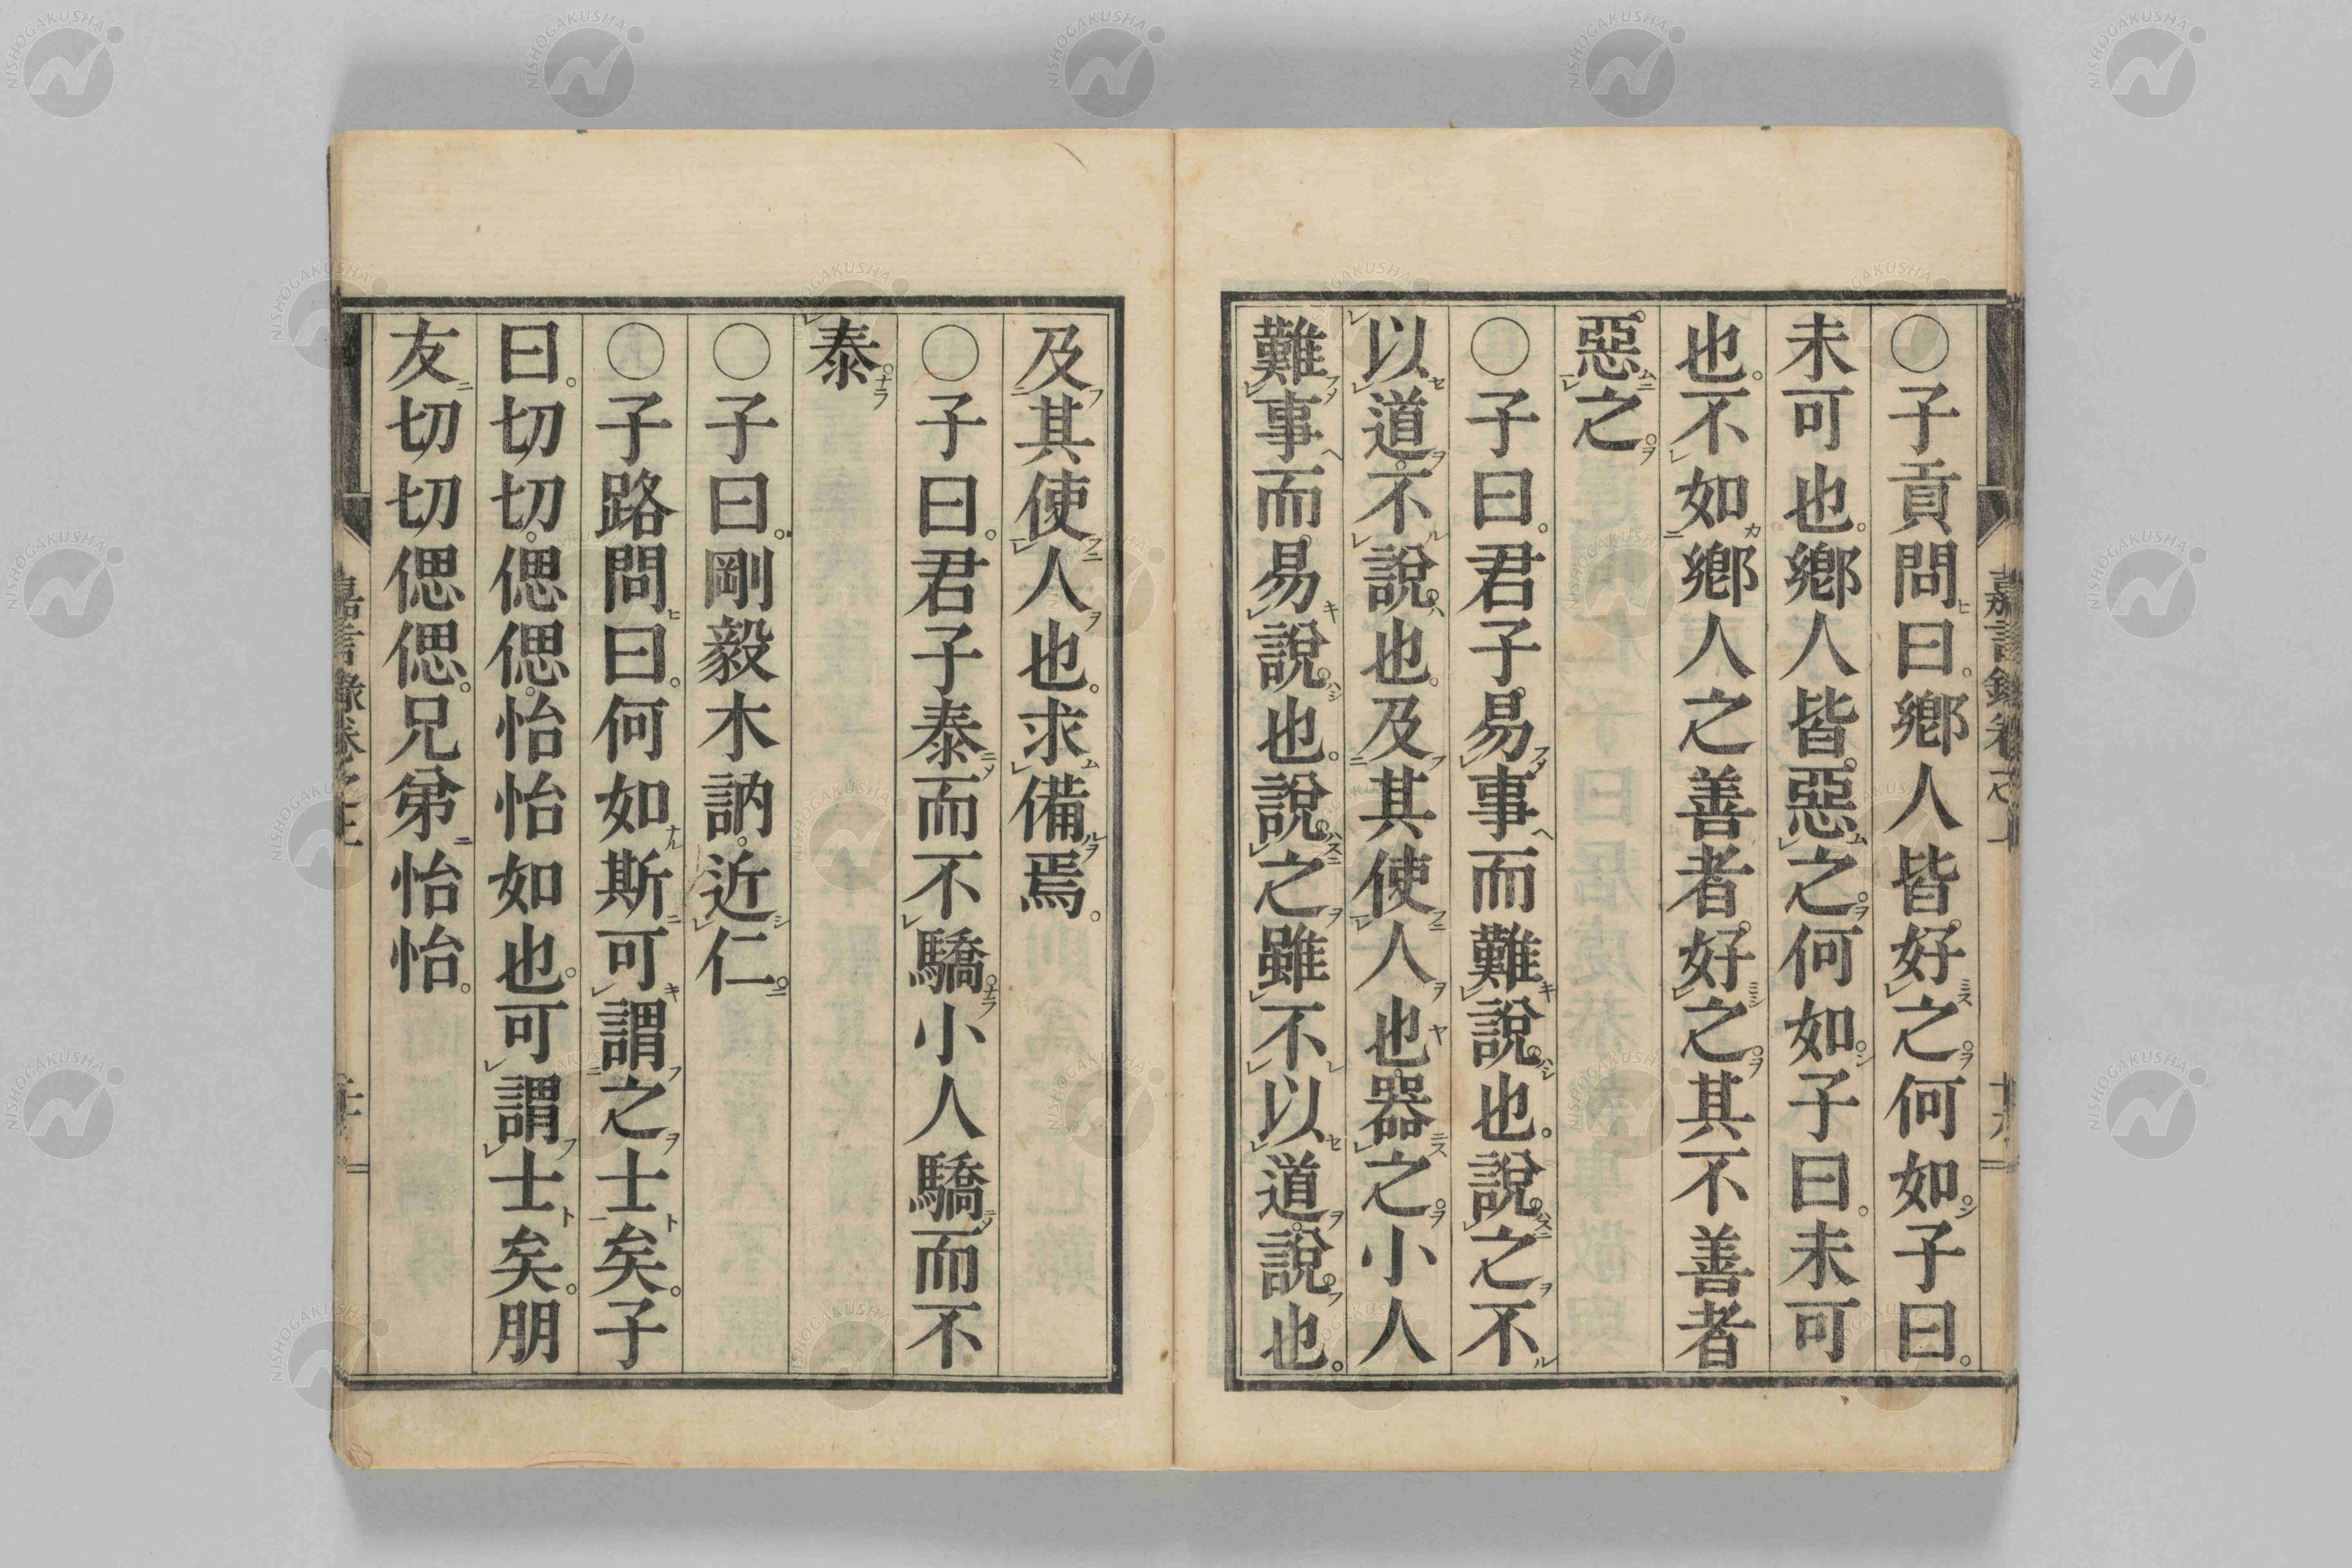 〇子貢問曰。鄉人皆好之。何如。子曰。
未可也。鄉人皆惡之。何如。子曰。未可
也。不如鄉人之善者好之。其不善者
惡之。
〇子曰。君子易事而難說也。說之不
以道。不說也。及其使人也。器之。小人
難事而易說也。說之雖不以道。說也。
及其使人也。求備焉。
〇子曰。君子泰而不驕。小人驕而不
泰。
〇子曰。剛毅木訥。近仁。
〇子路問曰。何如斯可謂之士矣。子
曰。切切。偲偲。怡怡如也。可謂士矣。朋
友切切偲偲。兄弟怡怡。
嘉言錄卷之上